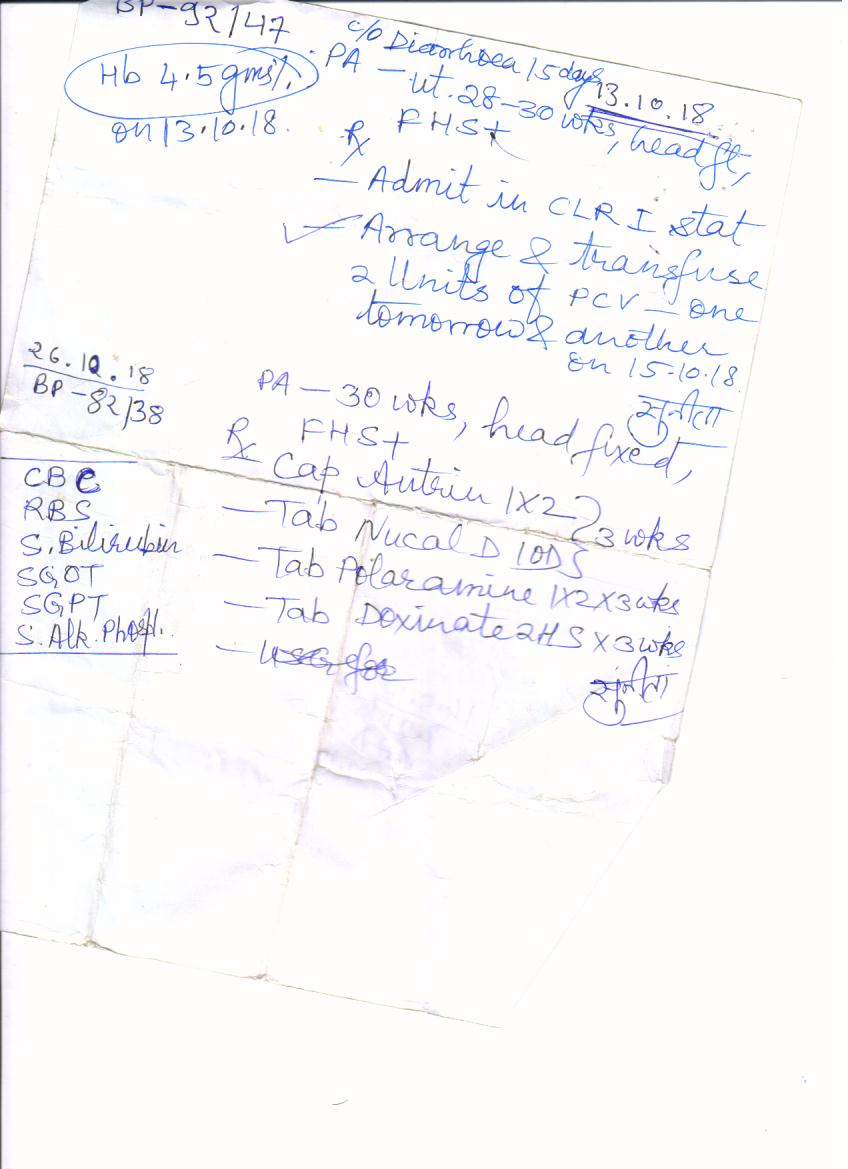 BP-92/47
c/o Diarrhoea 15 days
Hb 4.5gms%.
on 13.10.18.
13.10.18
PA - ut. 28-30 wks, head fl,
FHS+
Rx
- Admit in CLRI stat
- Arrange & transfuse
2 Units of PCV - one
tomorrow & another
on 15.10.18.
सुनीता
26.10.18
BP-82/38
PA - 30 wks, head fixed,
FHS+
Rx
Cap Autrin 1X2 } 3 wks
- Tab Nucal D 1OD
- Tab Polaramine 1X2X3wks
- Tab Doxinate 2HS X 3 wks
- USG for
सुनीता
CBC
RBS
S. Bilirubin
SGOT
SGPT
S. Alk. Phosph.